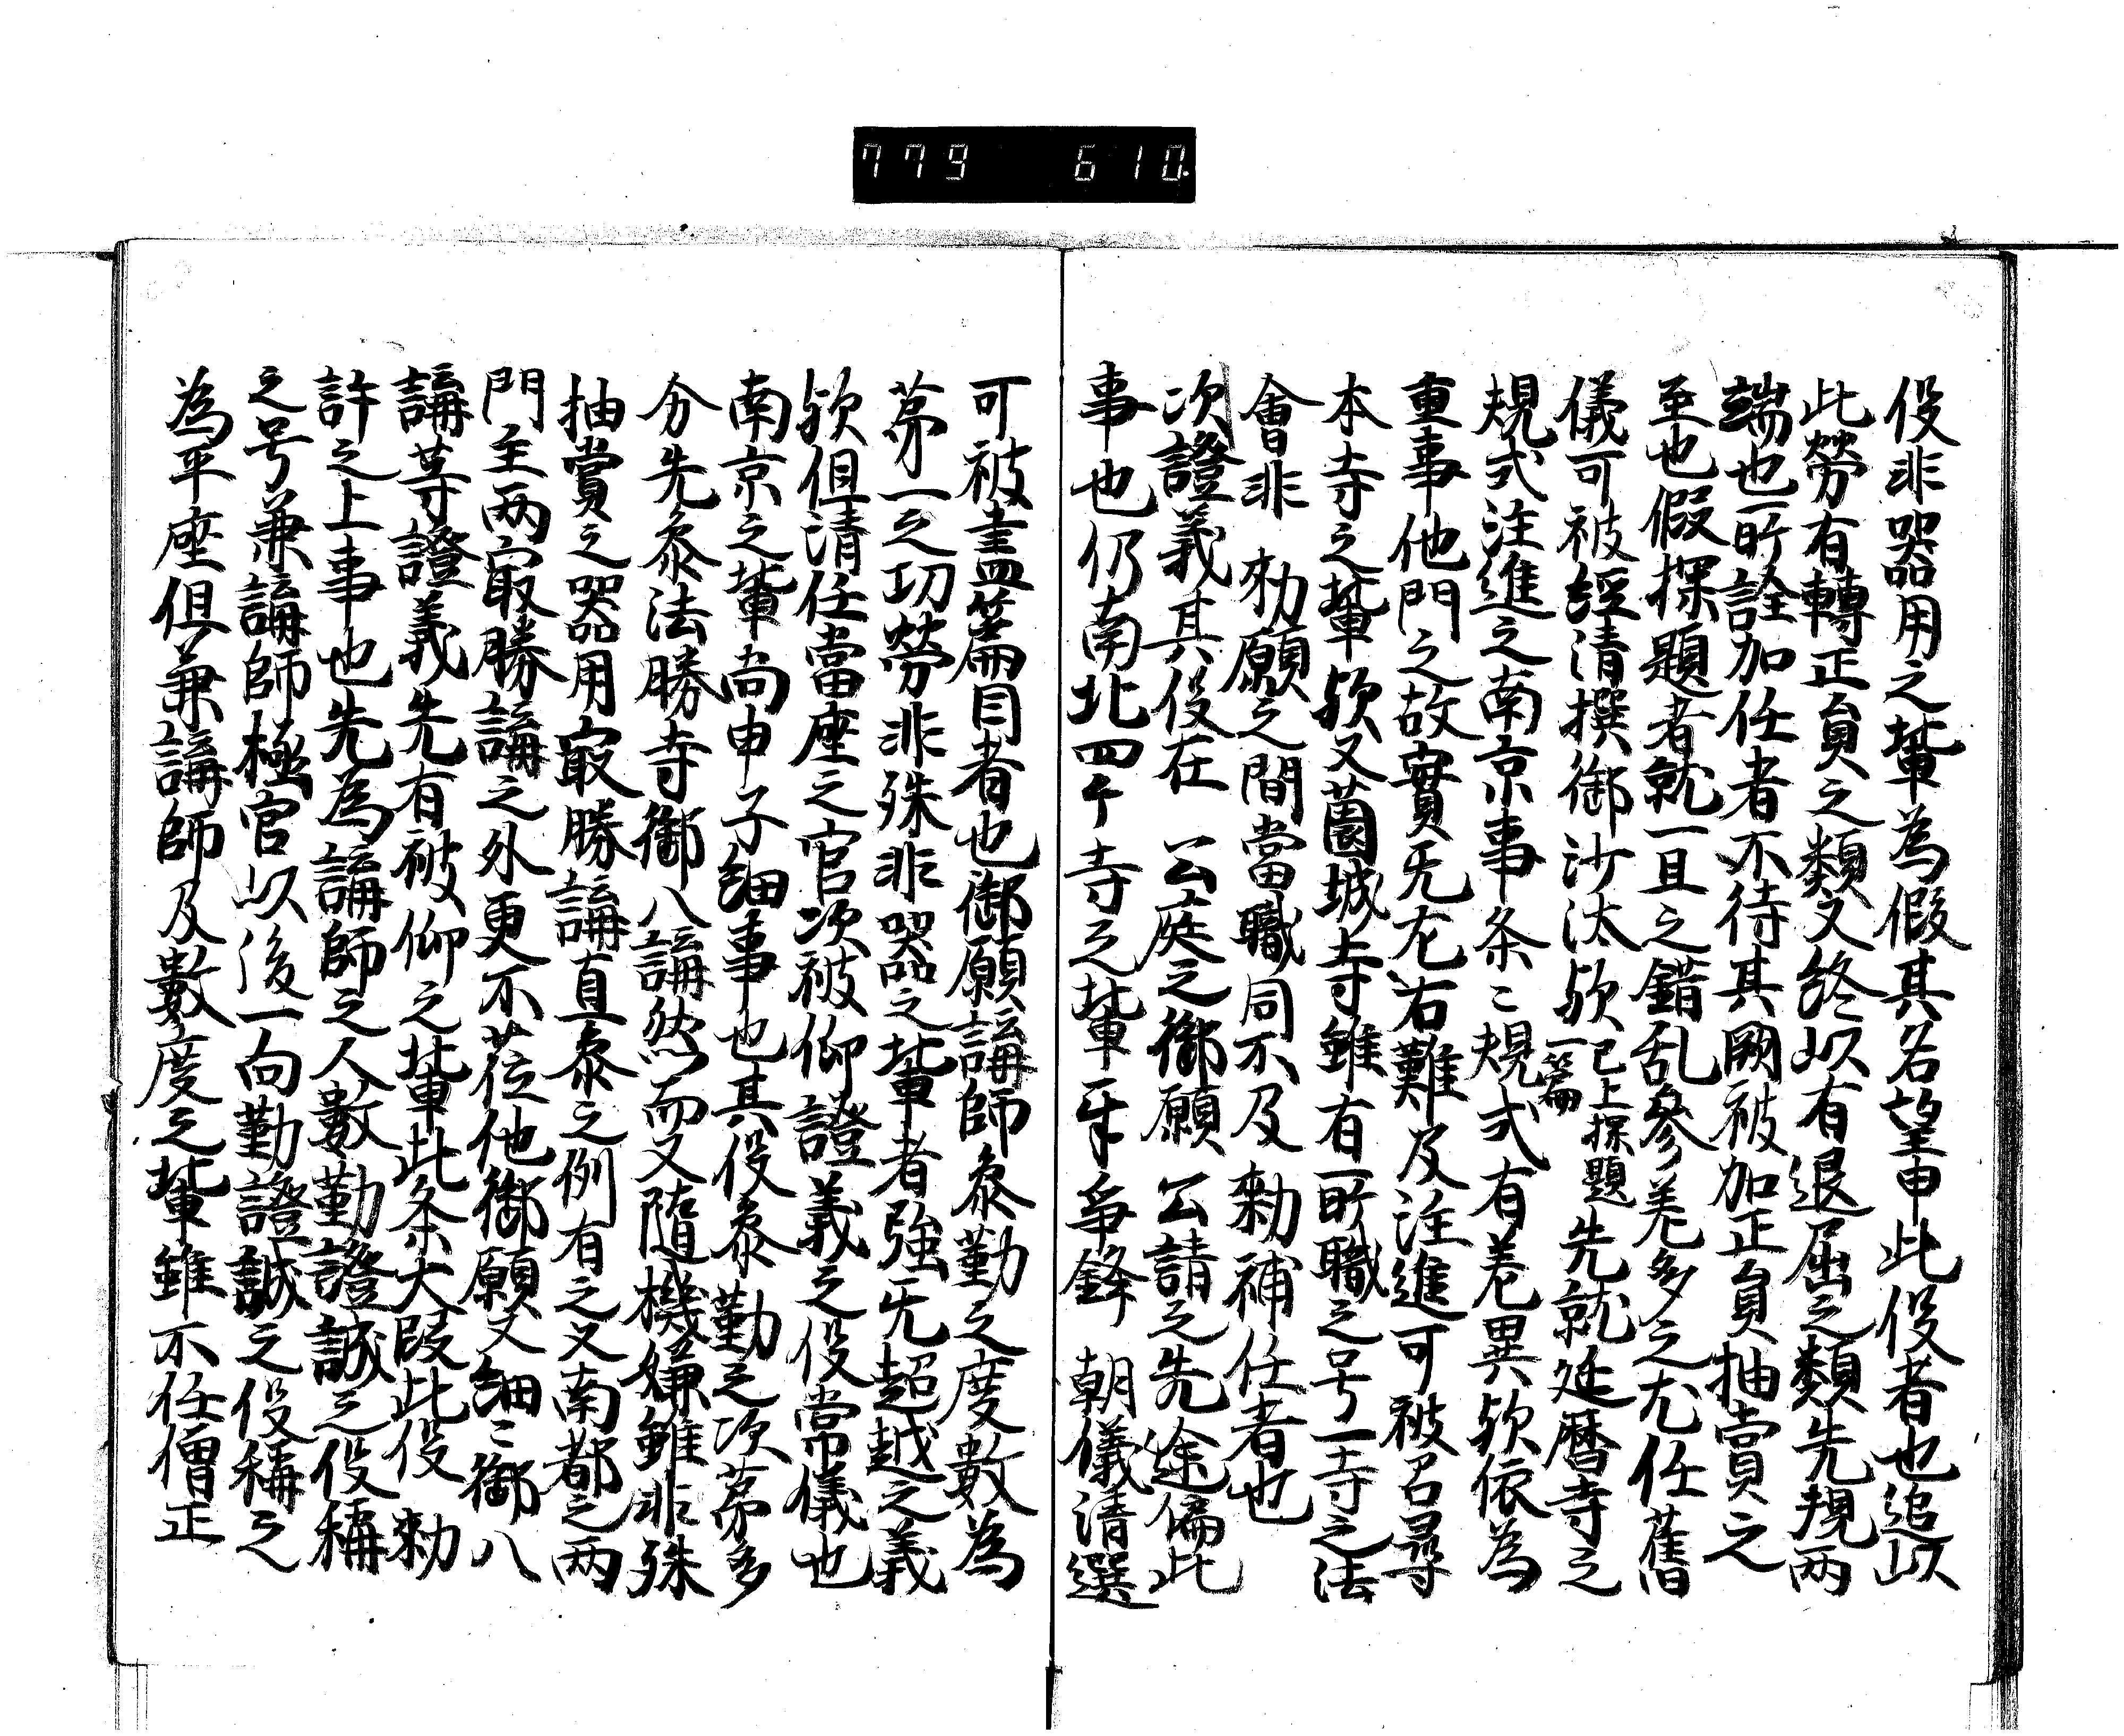 779 610
役非器用之輩為假其名望申此役者也追以
此勞有轉正員之類又終以有退屈之類先規両
端也所詮加任者不待其闕被加正員抽賞之
至也假探題者就一旦之錯乱参差多之尤任舊
儀可被經清撰御沙汰歟已上探題一篇先就延暦寺之
規式注進之南京事条々規式有差異歟依為
重事他門之故實无左右難及注進可被召尋
本寺之輩歟又薗城寺雖有一所職之号一寺之法
會非 勅願之間當職同不及勅補任者也
次證義其役在 公庭之御願 公請之先途偏此
事也仍南北四ケ寺之輩牙争鋒 朝儀清選
可被盡篇目者也御願講師叅勤之度數為
苐一之功勞非殊非器之輩者強无超越之義
歟但清任當座之官次被仰證義之役常儀也
南京之輩尚申子細事也其役叅勤之次苐多
分先叅法勝寺御八講然而又隨機嫌雖非殊
抽賞之器用㝡勝講直叅之例有之又南都之両
門主両㝡勝講之外更不莅他御願又細々御八
講等證義先有被仰之輩此条大段此役 勅
許之上事也先為講師之人數勤證誠之役稱
之号兼講師極官以後一向勤證誠之役稱之
為平座但兼講師及數度之輩雖不任僧正